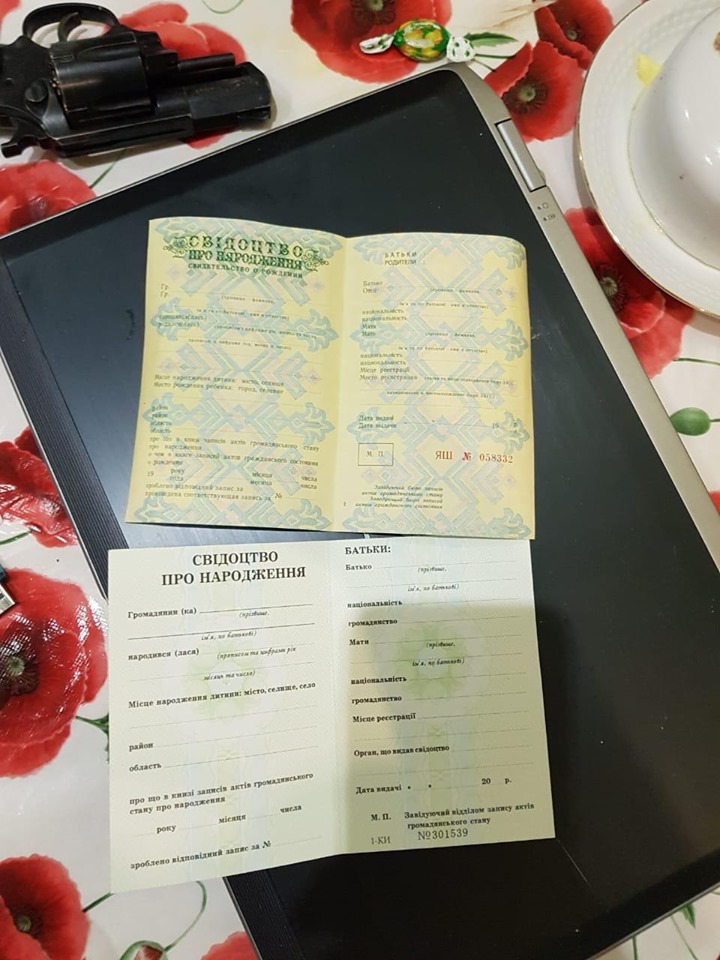 СВІДОЦТВО
ПРО НАРОДЖЕННЯ
СВИДЕТЕЛЬСТВО О РОЖДЕНИИ
Гр.
Гр.
(прізвище фамилия,
Місце народження дитини: місто, селище
Место рождения ребенка: город, селение
район
район
область
область
про що в книзі записів актів громадянського стану
про народження
о чем в книге записей актов гражданского состояния
о рождении
19 року місяця числа
года месяца числа
зроблено відповідний запис за №
произведена соответствующая запись за
БАТЬКИ
РОДИТЕЛИ
Батько
Отец
(прізвище фамилия,
ім'я та по батькові - имя и отчество)
національність
национальность
Мати
Мать
(прізвище фамилия,
ім'я та по батькові - имя и отчество)
національність
национальность
Місце реєстрації
Место регистрации
Дата видачі
Дата выдачи 19 р.
М. П.
ЯШ № 058332
Завідуючий бюро записів
актів громадянського стану
Заведующий бюро записей
актов гражданского состояния
СВІДОЦТВО
ПРО НАРОДЖЕННЯ
Громадянин (ка)
(прізвище,
ім'я, по батькові)
народився (лася)
(прописом та цифрами рік
місяць та число)
Місце народження дитини: місто, селище, село
район
область
про що в книзі записів актів громадянського
стану про народження
року місяця числа
зроблено відповідний запис за №
БАТЬКИ:
Батько
(прізвище,
ім'я, по батькові)
національність
громадянство
Мати
(прізвище,
ім'я, по батькові)
національність
громадянство
Місце реєстрації
Орган, що видав свідоцтво
Дата видачі " " 20 р.
М. П. Завідуючий відділом запису актів
громадянського стану
1-КИ №301539